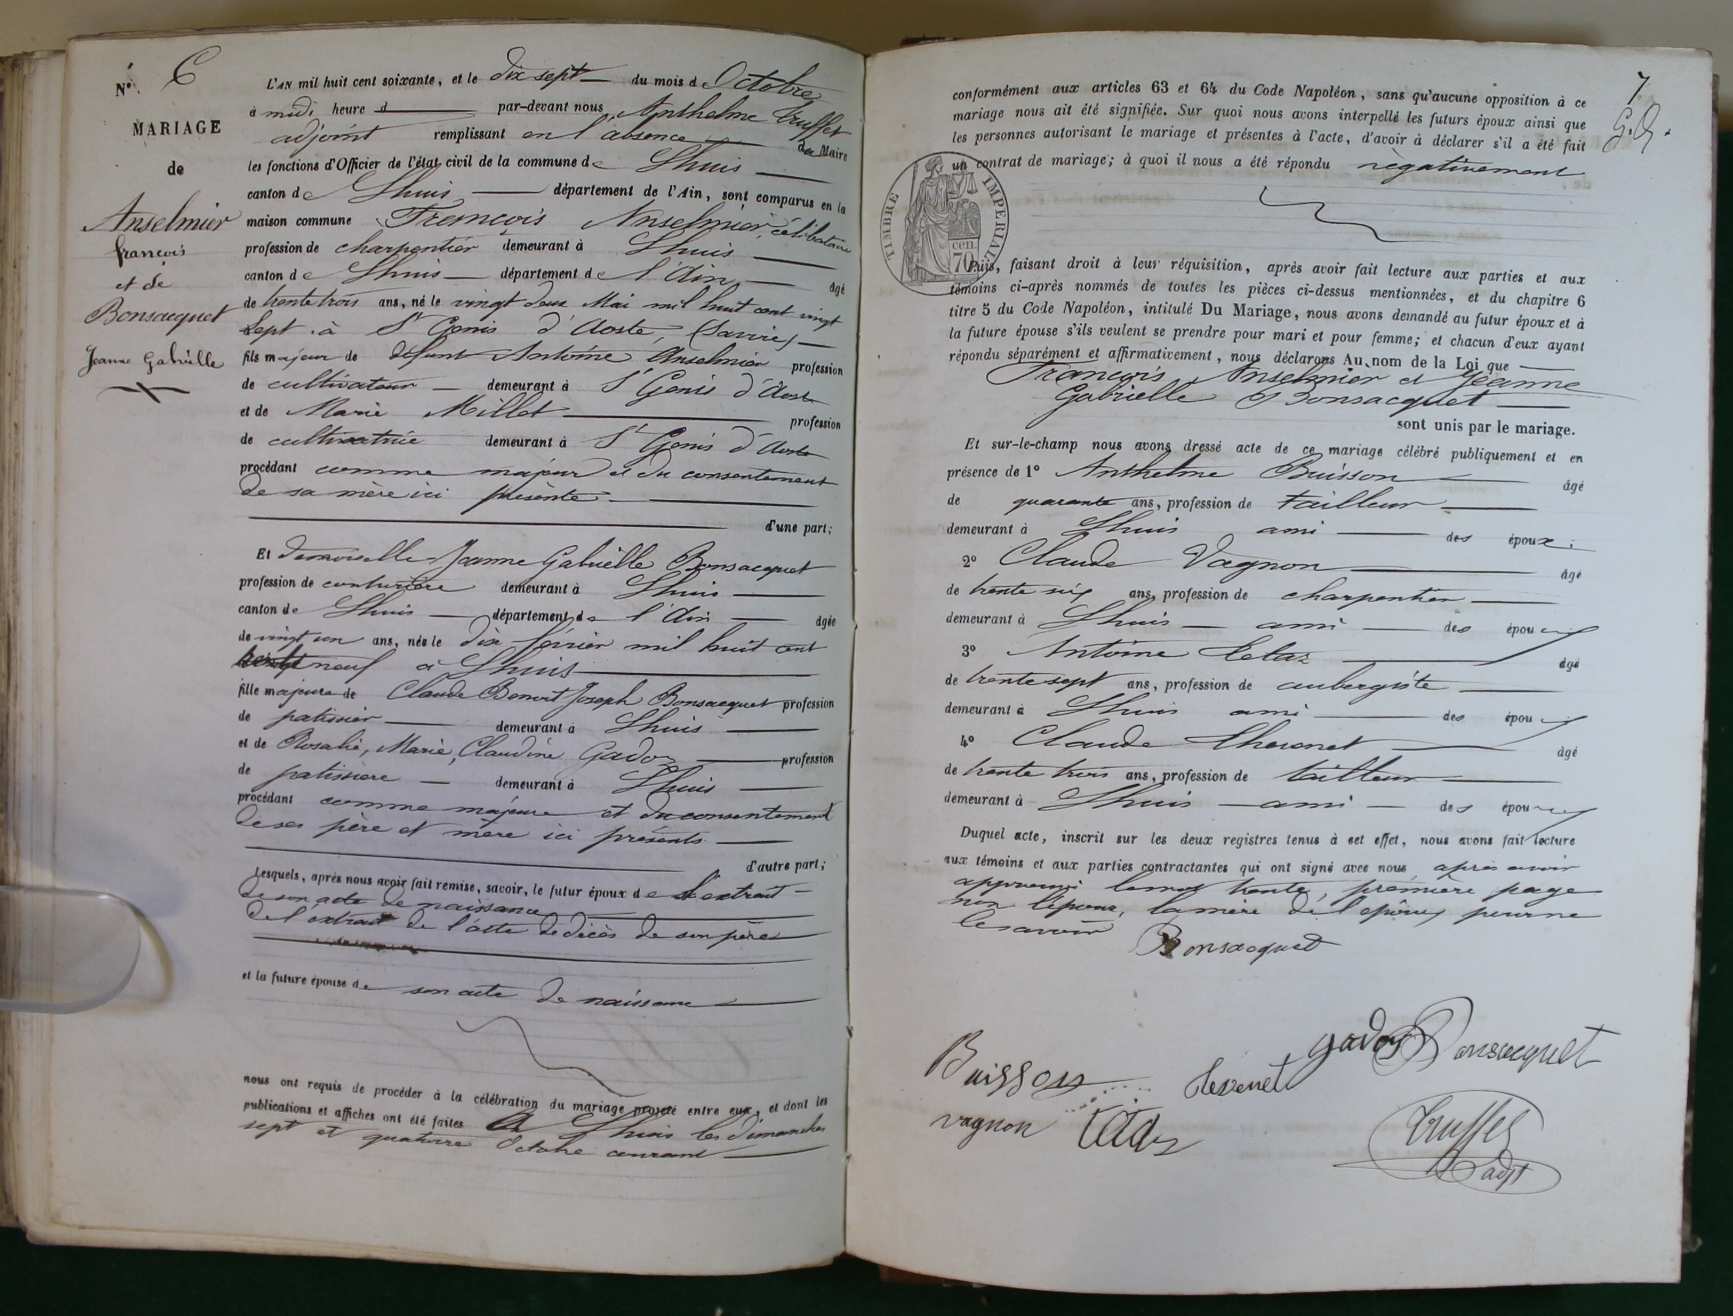 N° 6
MARIAGE
de
Anselmier
françois
et de
Bonsacquet
Jeanne Gabrielle
L'AN mil huit cent soixante, et le dix sept du mois d Octobre
à midi heure d par-devant nous, Anthelme Truffet
adjoint remplissant en l'absence du Maire
les fonctions d'Officier de l'état civil de la commune de Lhuis
canton de Lhuis département de l'Ain, sont comparus en la
maison commune François Anselmier, célibataire
profession de charpentier demeurant à Lhuis
canton de Lhuis département de l'Ain âgé
de trente trois ans, né le vingt deux Mai mil huit cent vingt
Sept à St Genis d'Aoste, (Savoie)
fils majeur de défunt Antoine Anselmier profession
de cultivateur demeurant à St Genis d'Aoste
et de Marie Millet profession
de cultivatrice demeurant à St Genis d'Aoste
procédant comme majeur et du consentement
de sa mère ici présente
d'une part;
Et demoiselle Jeanne Gabrielle Bonsacquet
profession de couturière demeurant à Lhuis
canton de Lhuis département de l'Ain âgée
de vingt un ans, née le dix février mil huit cent
trente neuf à Lhuis
fille majeure de Claude Benoit Joseph Bonsacquet profession
de patissier demeurant à Lhuis
et de Rosalie, Marie, Claudine Gadoz profession
de patissiere demeurant à Lhuis
procédant comme majeure et du consentement
de ses père et mère ici présents
d'autre part;
Lesquels, après nous avoir fait remise, savoir, le futur époux de l'extrait
de son acte de naissance
de l'extrait de l'acte de décès de son père
et la future épouse de son acte de naissance
nous ont requis de procéder à la célébration du mariage projeté entre eux, et dont les
publications et affiches ont été faites à Lhuis les dimanches
sept et quatorze Octobre courant
7
G.Q.
conformément aux articles 63 et 64 du Code Napoléon, sans qu'aucune opposition à ce
mariage nous ait été signifiée. Sur quoi nous avons interpellé les futurs époux ainsi que
les personnes autorisant le mariage et présentes à l'acte, d'avoir à déclarer s'il a été fait
un contrat de mariage; à quoi il nous a été répondu négativement
TIMBRE IMPERIAL
cen.
70
Puis, faisant droit à leur réquisition, après avoir fait lecture aux parties et aux
témoins ci-après nommés de toutes les pièces ci-dessus mentionnées, et du chapitre 6
titre 5 du Code Napoléon, intitulé Du Mariage, nous avons demandé au futur époux et à
la future épouse s'ils veulent se prendre pour mari et pour femme; et chacun d'eux ayant
répondu séparément et affirmativement, nous déclarons Au nom de la Loi que
François Anselmier et Jeanne
Gabrielle Bonsacquet
sont unis par le mariage.
Et sur-le-champ nous avons dressé acte de ce mariage célébré publiquement et en
présence de 1° Anthelme Buisson âgé
de quarante ans, profession de tailleur
demeurant à Lhuis ami des époux;
2° Claude Vagnon âgé
de trente six ans, profession de charpentier
demeurant à Lhuis ami des époux
3° Antoine Tetaz âgé
de trente sept ans, profession de aubergiste
demeurant à Lhuis ami des époux
4° Claude Thevenet âgé
de trente trois ans, profession de tailleur
demeurant à Lhuis ami des époux
Duquel acte, inscrit sur les deux registres tenus à cet effet, nous avons fait lecture
aux témoins et aux parties contractantes qui ont signé avec nous après avoir
approuvé le mot trente, première page
non l'époux, la mère de l'époux pour ne
le savoir
Bonsacquet
Buisson
Thevenet
gadoz
Bonsacquet
vagnon
Truffet
adjt